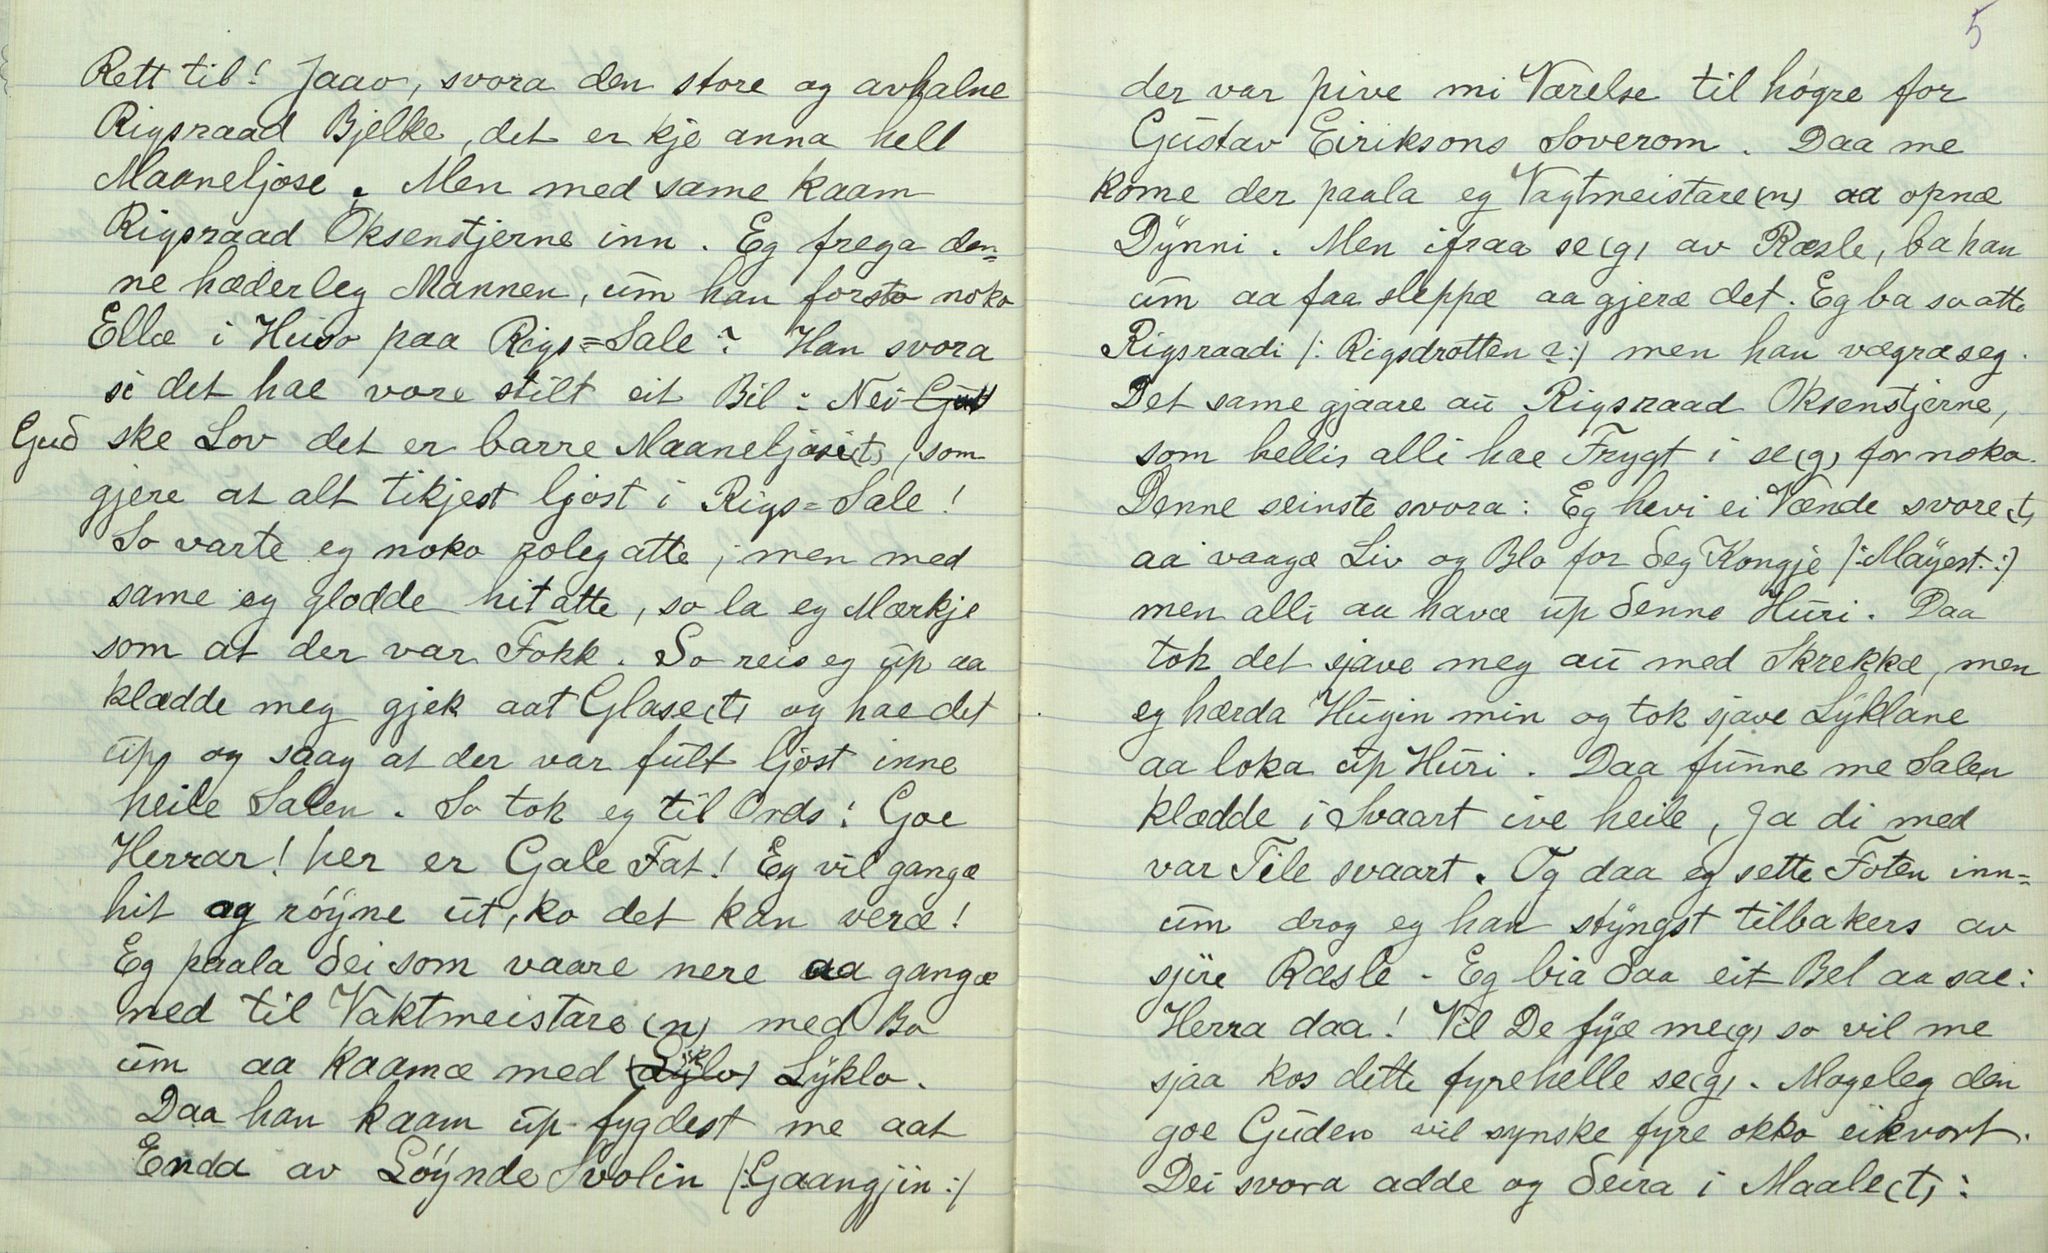 Rett til! Jaao, svora den store og avhalne
Rigsraad Bjelke, det er kje anna hell
Maaneljose. Men med same kaam
Rigsraad Oksenstjerne inn. Eg frega den=
ne hæderleg Mannen, um han forsto noko
Ellæ i Huso paa Rigs=Sale? Han svora
si det hae vore stilt eit Bil: Nei Gud
Gud ske Lov det er barre Maaneljose(t), som
gjere at alt tikjest ljost i Rigs=Sale!
So varte eg noko roleg atte, men med
same eg glodde hit atte, so la eg Mærkje
som at der var Fokk. So reis eg up aa
klædde meg gjek aat Glase(t) og hae det
up, og saag at der var fult ljost inne
heile Salen. So tok eg til Ords: Goe
Herrar! her er Gale Fat! Eg vil gangæ
hit og røyne ut, ko det kan veræ!
Eg paala dei som vaare nere aa gangæ
ned til Vaktmeistare(n) med Bo
um aa kaamæ med Lyklo.
Daa han kaam up fygdest me aat
Enda av Løynde Svolin /:Gaangjin:/
5
der var pive mi Værelse til høgre for
Gustav Eiriksons Soverom. Daa me
kome der paala eg Vagtmeistare(n) aa opnæ
Dynni. Men ifraa se(g) av Ræsle, ba han
um aa faa sleppæ aa gjeræ det. Eg ba so atte
Rigsraadi /: Rigsdrotten ?:/ men han vægræ seg.
Det same gjaare au Rigsraad Oksenstjerne,
som hellis alli hae Frygt i se(g) for noko.
Denne seinste svora: Eg hevi ei Vænde svore(t)
aa vaagæ Liv og Blo for deg Kongje /:Mayest.:/
men alli aa havæ up denne Huri. Daa
tok det sjave meg au med Skrekkæ, men
eg hærda Hugin min og tok sjave Lyklane
aa loka up Huri. Daa funne me Salen
klædde i Svaart ive heile, Ja di med
var Tile svaart. Og daa eg sette Foten inn=
um drog eg han styngst tilbakers av
sjire Ræsle. Eg bia daa eit Bel aa sae:
Herra daa! Vil De fyæ me(g) so vil me
sjaa kos dette fyrehelle se(g). Mogeleg den
goe Guden vil synske fyre okko eikvort.
Dei svora adde og deira i Maale(t):